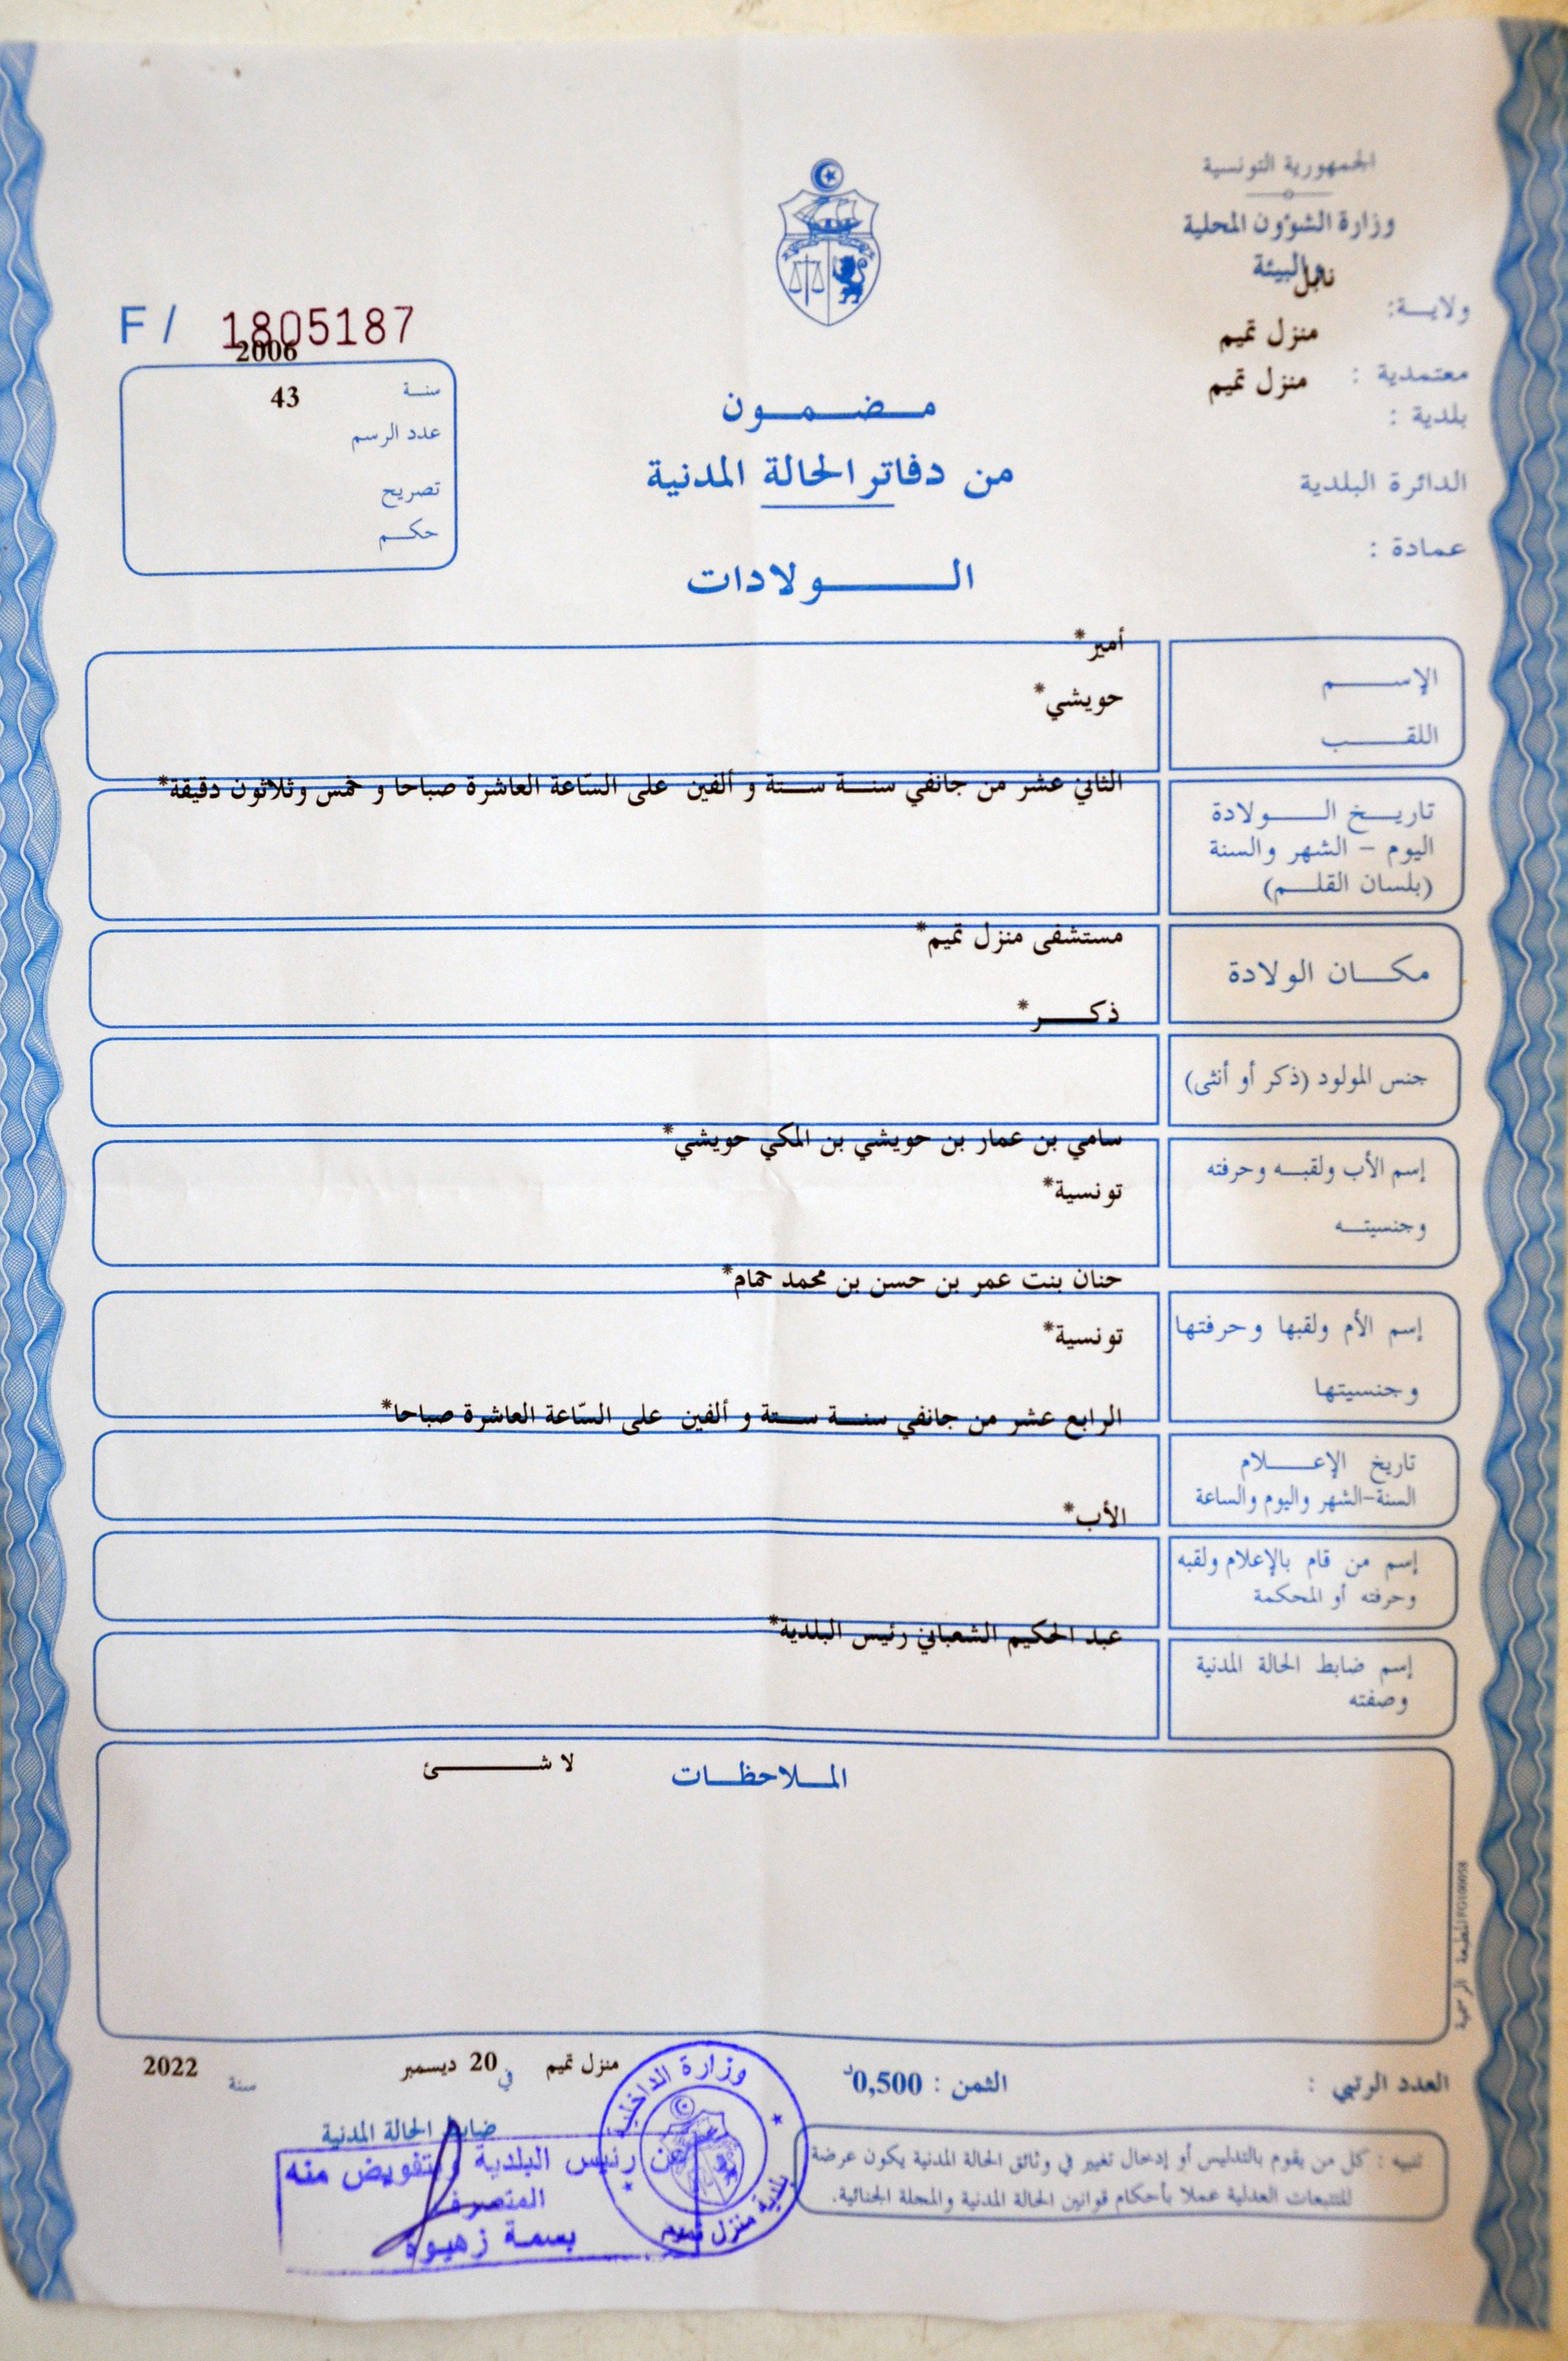 الجمهورية التونسية
وزارة الشؤون المحلية
والبيئة
ولايـــة: نابل
معتمدية : منزل تميم
بلدية : منزل تميم
الدائرة البلدية
عمادة :
F / 1805187
سنـة 2006
عدد الرسم 43
تصريح
حكـــم
مـــضـــمـــون
من دفاتر الحالة المدنية
الـــــولادات
الإســـــم أمير*
اللقـــــب حويشي*
تاريـــخ الـــــولادة
اليوم - الشهر والسنة
(بلسان القلـــم)
الثاني عشر من جانفي سنـــة ستـــة و ألفين على السّاعة العاشرة صباحا و خمس وثلاثون دقيقة*
مكـــان الولادة
مستشفى منزل تميم*
جنس المولود (ذكر أو أنثى)
ذكـــــر*
إسم الأب ولقبـــه وحرفته
وجنسيتـــه
سامي بن عمار بن حويشي بن المكي حويشي*
تونسية*
إسم الأم ولقبها وحرفتها
وجنسيتها
حنان بنت عمر بن حسن بن محمد حمام*
تونسية*
تاريخ الإعـــــلام
السنة-الشهر واليوم والساعة
الرابع عشر من جانفي سنـــة ستـــة و ألفين على السّاعة العاشرة صباحا*
إسم من قام بالإعلام ولقبه
وحرفته أو المحكمة
الأب*
إسم ضابط الحالة المدنية
وصفته
عبد الحكيم الشعباني رئيس البلدية*
المـــلاحظـــات لا شـــــئ
المطبعة الرسمية
العدد الرتبي :
الثمن : 0,500د
منزل تميم في 20 ديسمبر سنة 2022
ضابط الحالة المدنية
عن رئيس البلدية وبتفويض منه
المتصرف
بسمة زهيوة
وزارة الداخلية
بلدية منزل تميم
تنبيه : كل من يقوم بالتدليس أو إدخال تغيير في وثائق الحالة المدنية يكون عرضة
للتتبعات العدلية عملا بأحكام قوانين الحالة المدنية والمجلة الجنائية.